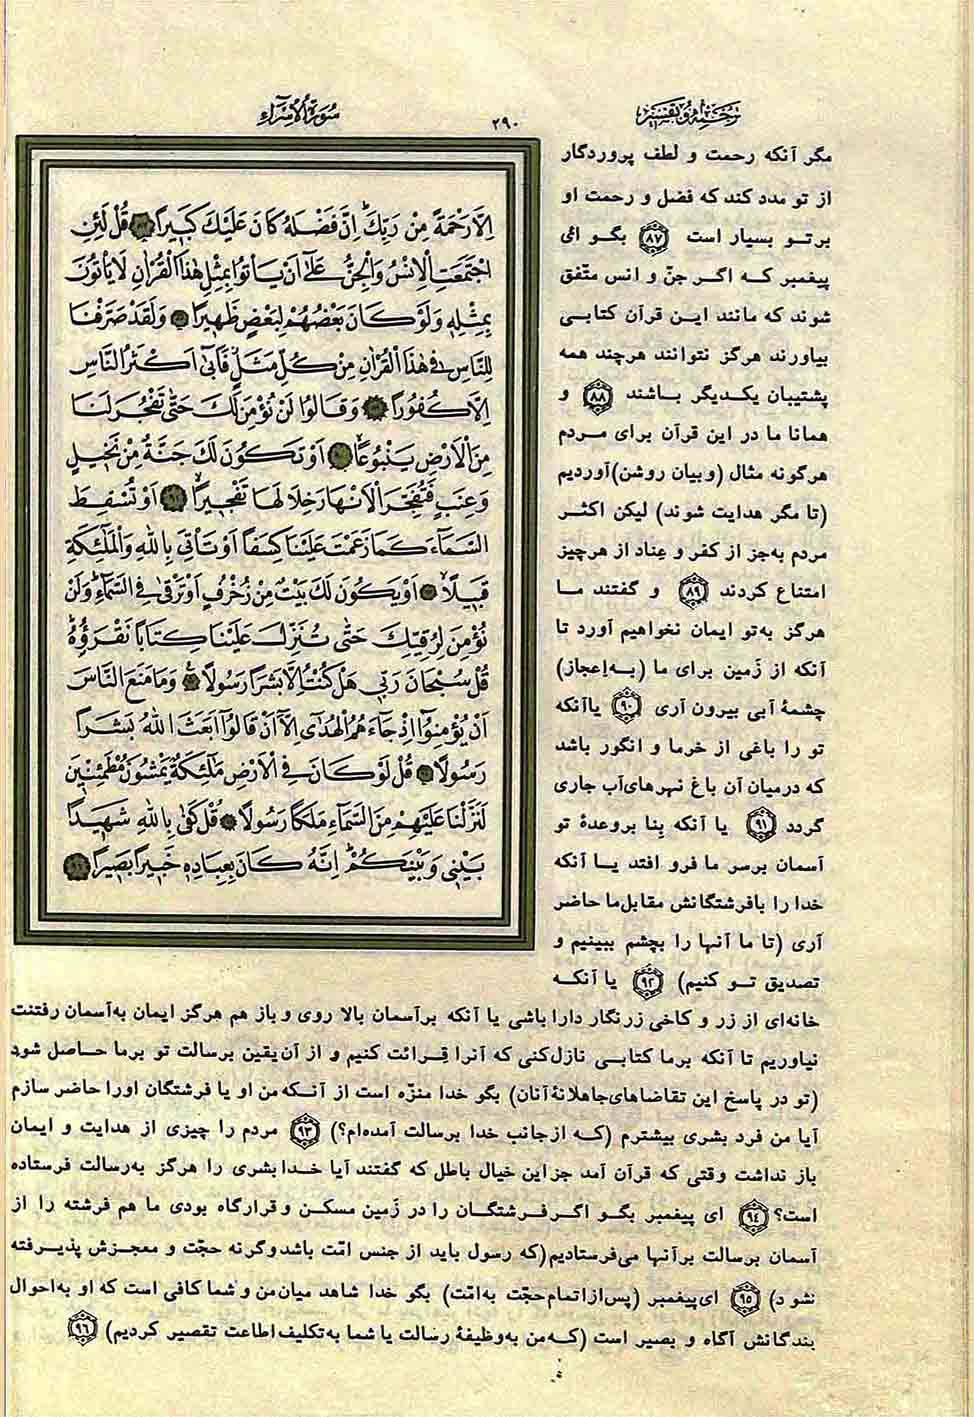 ترجمه و تفسیر
۲۹۰
سُورَةُ الْإِسْرَاءِ
اِلَّا رَحْمَةً مِنْ رَبِّكَ اِنَّ فَضْلَهُ كَانَ عَلَيْكَ كَبِيرًا ﴿٨٧﴾ قُلْ لَئِنِ
اجْتَمَعَتِ الْاِنْسُ وَالْجِنُّ عَلٰٓى اَنْ يَأْتُوا بِمِثْلِ هٰذَا الْقُرْاٰنِ لَا يَأْتُونَ
بِمِثْلِهٖ وَلَوْ كَانَ بَعْضُهُمْ لِبَعْضٍ ظَهِيرًا ﴿٨٨﴾ وَلَقَدْ صَرَّفْنَا
لِلنَّاسِ فِى هٰذَا الْقُرْاٰنِ مِنْ كُلِّ مَثَلٍ فَاَبٰٓى اَكْثَرُ النَّاسِ
اِلَّا كُفُورًا ﴿٨٩﴾ وَقَالُوا لَنْ نُؤْمِنَ لَكَ حَتّٰى تَفْجُرَ لَنَا
مِنَ الْاَرْضِ يَنْبُوعًا ﴿٩٠﴾ اَوْ تَكُونَ لَكَ جَنَّةٌ مِنْ نَخِيلٍ
وَعِنَبٍ فَتُفَجِّرَ الْاَنْهَارَ خِلَالَهَا تَفْجِيرًا ﴿٩١﴾ اَوْ تُسْقِطَ
السَّمَاءَ كَمَا زَعَمْتَ عَلَيْنَا كِسَفًا اَوْ تَأْتِىَ بِاللّٰهِ وَالْمَلٰٓئِكَةِ
قَبِيلًا ﴿٩٢﴾ اَوْ يَكُونَ لَكَ بَيْتٌ مِنْ زُخْرُفٍ اَوْ تَرْقٰى فِى السَّمَاءِ وَلَنْ
نُؤْمِنَ لِرُقِيِّكَ حَتّٰى تُنَزِّلَ عَلَيْنَا كِتَابًا نَقْرَؤُهُ
قُلْ سُبْحَانَ رَبِّى هَلْ كُنْتُ اِلَّا بَشَرًا رَسُولًا ﴿٩٣﴾ وَمَا مَنَعَ النَّاسَ
اَنْ يُؤْمِنُوٓا اِذْ جَاءَهُمُ الْهُدٰٓى اِلَّٓا اَنْ قَالُوٓا اَبَعَثَ اللّٰهُ بَشَرًا
رَسُولًا ﴿٩٤﴾ قُلْ لَوْ كَانَ فِى الْاَرْضِ مَلٰٓئِكَةٌ يَمْشُونَ مُطْمَئِنِّينَ
لَنَزَّلْنَا عَلَيْهِمْ مِنَ السَّمَاءِ مَلَكًا رَسُولًا ﴿٩٥﴾ قُلْ كَفٰى بِاللّٰهِ شَهِيدًا
بَيْنِى وَبَيْنَكُمْ اِنَّهُ كَانَ بِعِبَادِهٖ خَبِيرًا بَصِيرًا ﴿٩٦﴾
مگر آنکه رحمت و لطف پروردگار
از تو مدد کند که فضل و رحمت او
برتو بسیار است ﴿٨٧﴾ بگو ای
پیغمبر که اگر جنّ و انس متّفق
شوند که مانند این قرآن کتابی
بیاورند هرگز نتوانند هرچند همه
پشتیبان یکدیگر باشند ﴿٨٨﴾ و
همانا ما در این قرآن برای مردم
هرگونه مثال (وبیان روشن) آوردیم
(تا مگر هدایت شوند) لیکن اکثر
مردم به‌جز از کفر و عِناد از هرچیز
امتناع کردند ﴿٨٩﴾ و گفتند ما
هرگز به‌تو ایمان نخواهیم آورد تا
آنکه از زَمین برای ما (به‌اِعجاز)
چشمهٔ آبی بیرون آری ﴿٩٠﴾ یاآنکه
تو را باغی از خرما و انگور باشد
که درمیان آن باغ نهرهای‌آب جاری
گردد ﴿٩١﴾ یا آنکه بِنا بروعدهٔ تو
آسمان برسر ما فرو افتد یا آنکه
خدا را بافرشتگانش مقابل‌ما حاضر
آری (تا ما آنها را بچشم ببینیم و
تصدیق تو کنیم) ﴿٩٢﴾ یا آنکه
خانه‌ای از زر و کاخی زرنگار دارا باشی یا آنکه برآسمان بالا روی و باز هم هرگز ایمان به‌آسمان رفتنت
نیاوریم تا آنکه برما کتابی نازل‌کنی که آنرا قرائت کنیم و از آن یقین برسالت تو برما حاصل شود
(تو در پاسخ این تقاضاهای‌جاهلانهٔ آنان) بگو خدا منزّه است از آنکه‌من او یا فرشتگان اورا حاضر سازم
آیا من فرد بشری بیشترم (که ازجانب خدا برسالت آمده‌ام؟) ﴿٩٣﴾ مردم را چیزی از هدایت و ایمان
باز نداشت وقتی که قرآن آمد جزاین خیال باطل که گفتند آیا خدا بشری را هرگز به‌رسالت فرستاده
است؟ ﴿٩٤﴾ ای پیغمبر بگو اگرفرشتگان را در زَمین مسکن و قرارگاه بودی ما هم فرشته را از
آسمان برسالت برآنها می‌فرستادیم(که رسول باید از جنس امّت باشد وگرنه حجّت و معجزش پذیرفته
نشود) ﴿٩٥﴾ ای‌پیغمبر (پس‌ازاتمام‌حجّت به‌امّت) بگو خدا شاهد میان‌من و شما کافی است که او به‌احوال
بندگانش آگاه و بصیر است (که‌من به‌وظیفهٔ رسالت یا شما به‌تکلیف‌اطاعت تقصیر کردیم) ﴿٩٦﴾